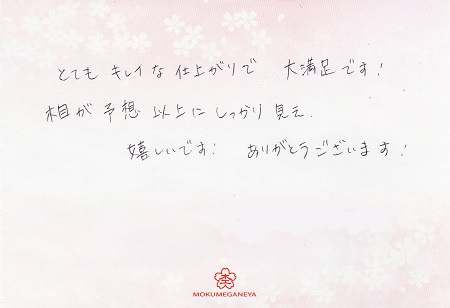 とても キレイな 仕上がりで 大満足です!
木目が 予想 以上に しっかり 見え.
嬉しいです! ありがとうございます!
MOKUMEGANEYA